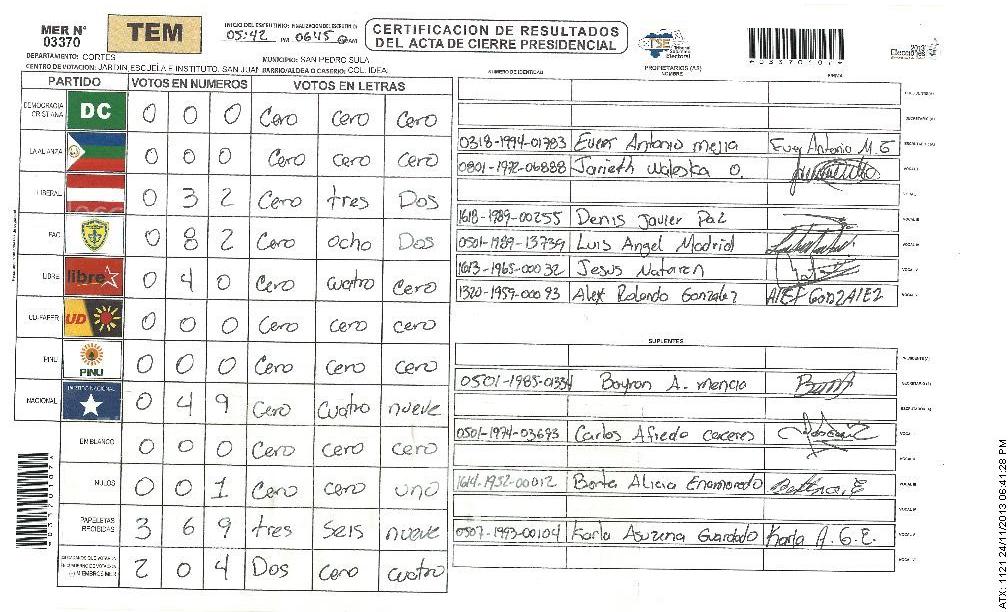 MER N° 03370
TEM
INICIO DEL ESCRUTINIO: FINALIZACION DEL ESCRUTINIO
05:42 PM 0645 AM
CERTIFICACION DE RESULTADOS
DEL ACTA DE CIERRE PRESIDENCIAL
TSE Tribunal Supremo Electoral
DEPARTAMENTO: CORTES MUNICIPIO: SAN PEDRO SULA
CENTRO DE VOTACION: JARDIN ESCUELA E INSTITUTO, SAN JUAN BARRIO/ALDEA O CASERIO: COL. IDEAL
NUMERO DE IDENTIDAD PROPIETARIOS (AS) NOMBRE FIRMA
PARTIDO VOTOS EN NUMEROS VOTOS EN LETRAS
DEMOCRACIA CRISTIANA DC 0 0 0 Cero Cero Cero
LA ALIANZA 0 0 0 Cero Cero Cero
LIBERAL 0 3 2 Cero tres Dos
PAC 0 8 2 Cero ocho Dos
LIBRE libre 0 4 0 Cero cuatro Cero
UD-FAPER UD 0 0 0 Cero Cero cero
PINU PINU 0 0 0 Cero Cero cero
NACIONAL PARTIDO NACIONAL 0 4 9 Cero cuatro nueve
EN BLANCO 0 0 0 Cero cero Cero
NULOS 0 0 1 Cero cero uno
PAPELETAS RECIBIDAS 3 6 9 tres Seis nueve
2 0 4 Dos cero cuatro
0318-1994-01783 Antonio mejia Antonio M.
0801-1972-06888 Waleska O.
1618-1989-00255 Denis Javier Paz
0501-1989-13739 Luis Angel Madrid
1613-1965-00032 Jesus Nataren
1320-1959-00093 Alex Rolando Gonzalez
SUPLENTES
0501-1985-01334 Bayron A. mencia
0501-1974-03693 Carlos Afredo caceres
1614-1952-00012 Berta Alicia Enamorado
0507-1993-00104 Karla Asuzena Guardado Karla A. G. E.
ATX: 1121 24/11/2013 06:41:28 PM